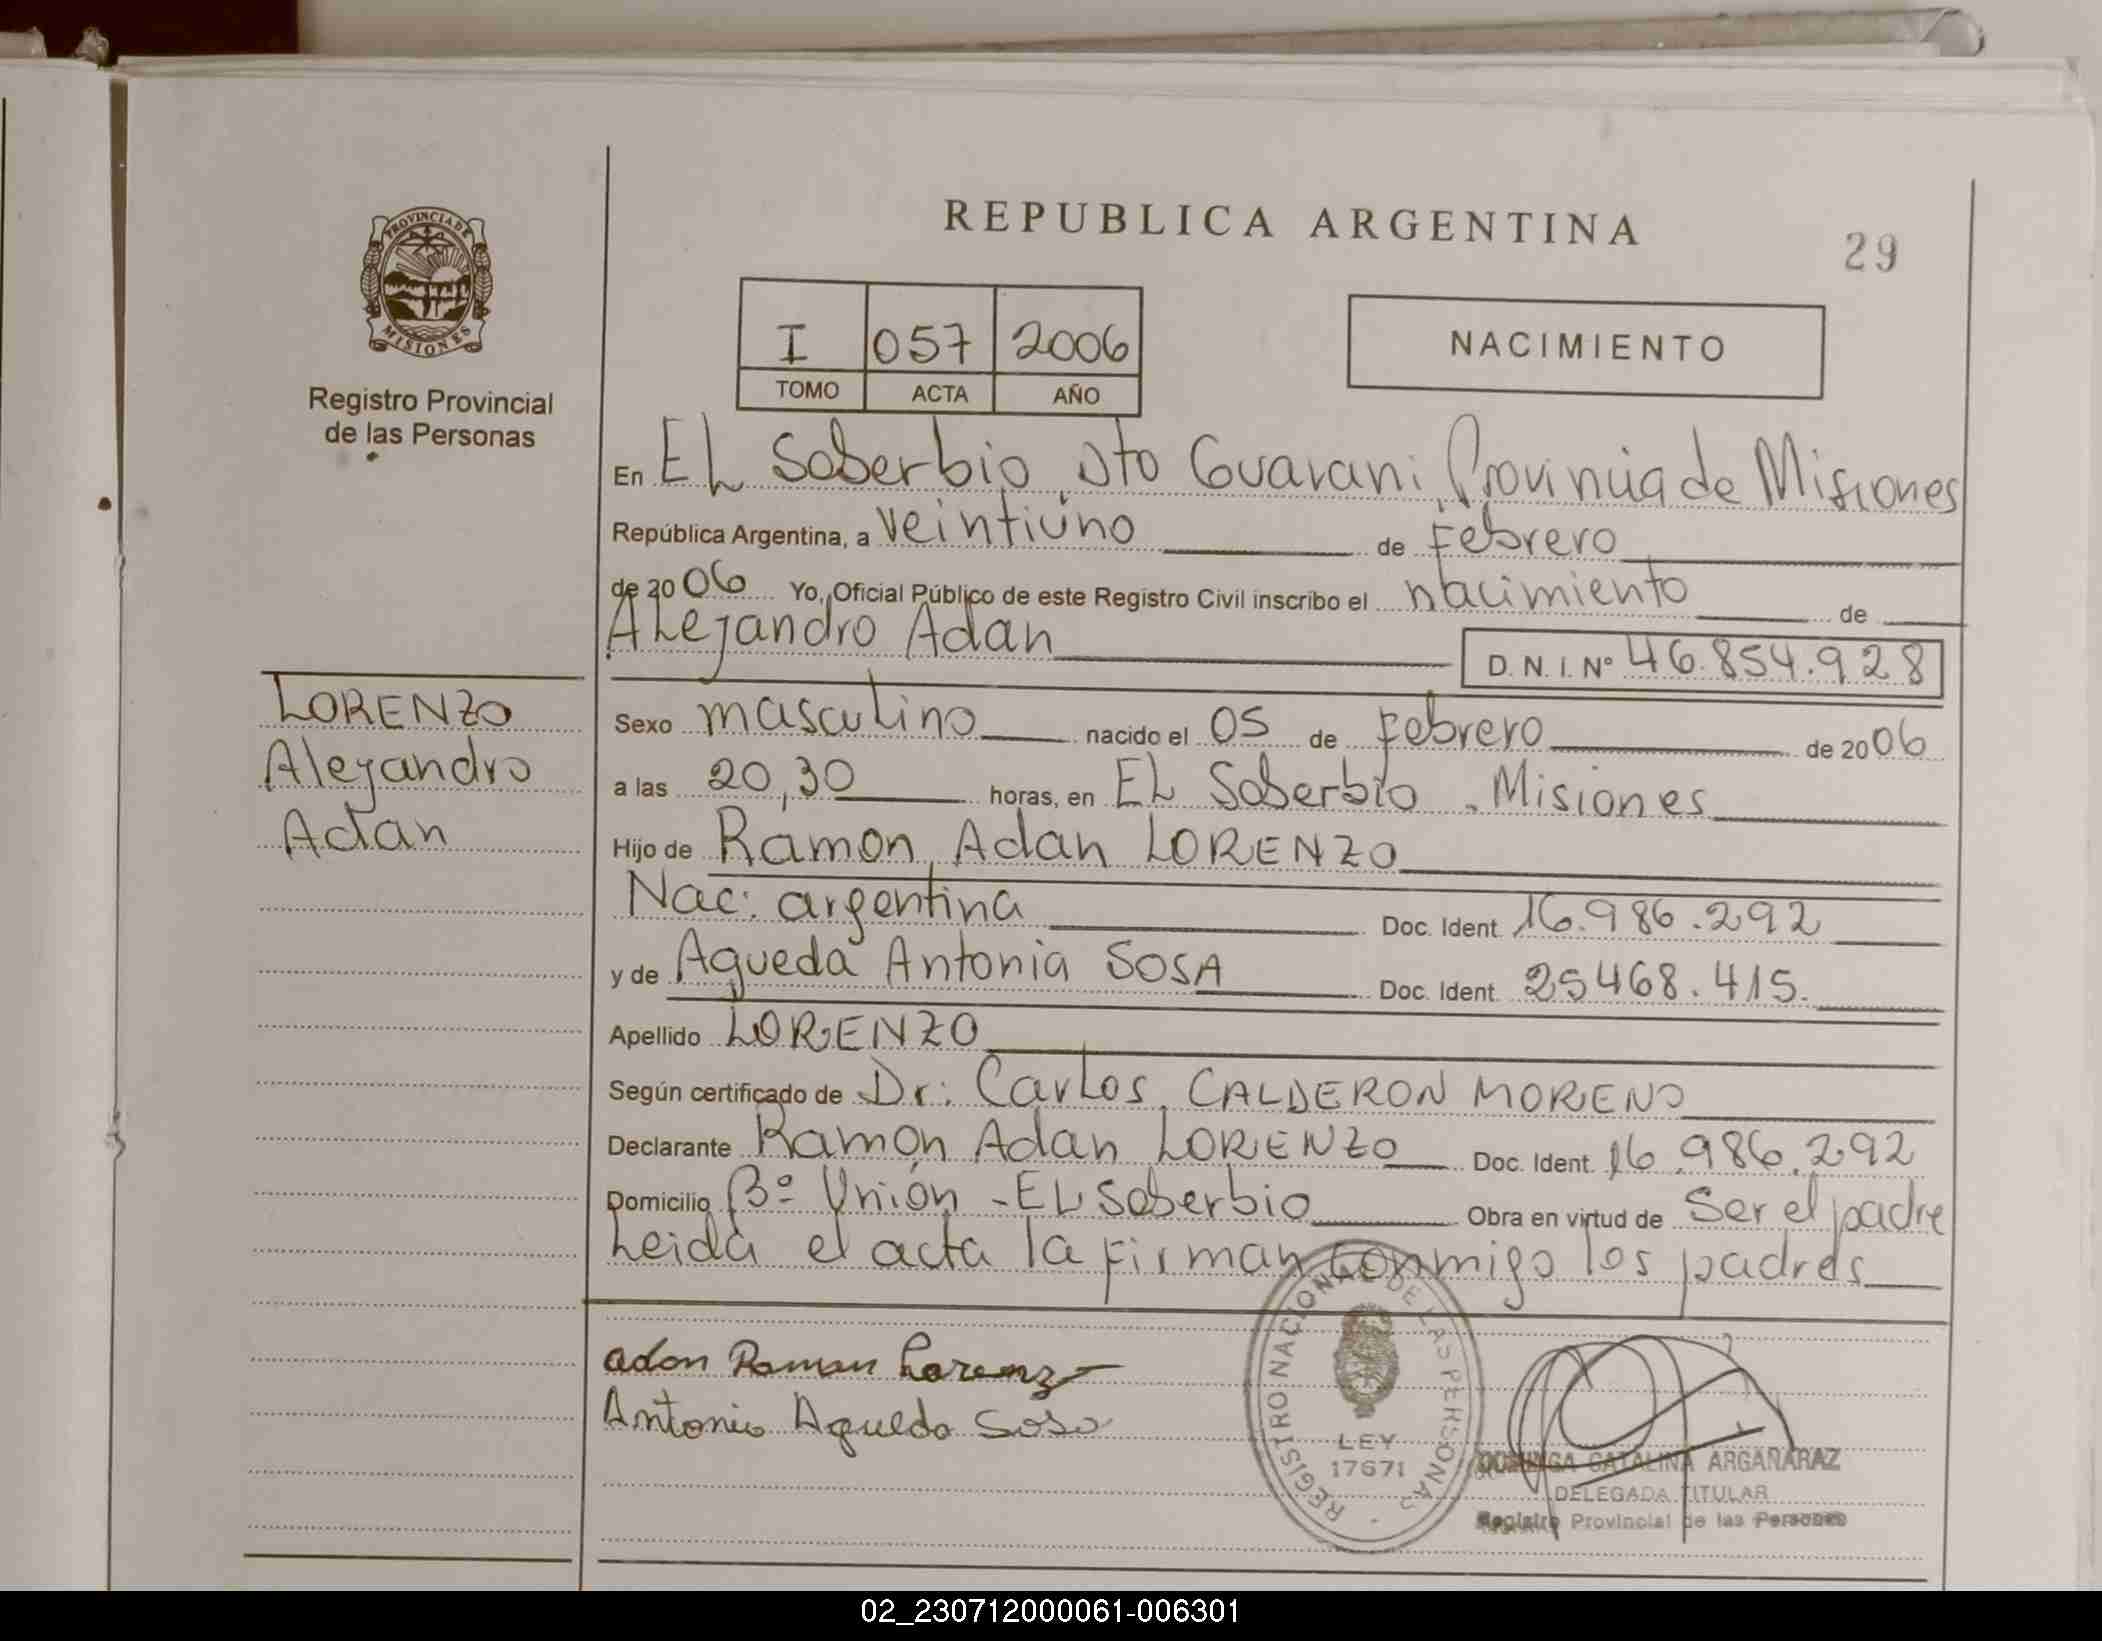 REPUBLICA ARGENTINA
29
PROVINCIA DE MISIONES
Registro Provincial
de las Personas
I 057 2006
TOMO ACTA AÑO
NACIMIENTO
En EL Soberbio, Dto Guarani, Provincia de Misiones
República Argentina, a veintiuno de Febrero
de 2006 Yo, Oficial Público de este Registro Civil inscribo el nacimiento de
Alejandro Adan
D. N. I. Nº 46.854.928
LORENZO
Alejandro
Adan
Sexo masculino nacido el 05 de Febrero de 2006
a las 20,30 horas, en EL Soberbio - Misiones
Hijo de Ramon Adan LORENZO
Nac: argentina Doc. Ident. 16.986.292
y de Agueda Antonia SOSA Doc. Ident. 25468.415.
Apellido LORENZO
Según certificado de Dr: Carlos CALDERON MORENO
Declarante Ramón Adan LORENZO Doc. Ident. 16.986.292
Domicilio Bº Unión - EL Soberbio Obra en virtud de Ser el padre
Leida el acta la firman conmigo los padres
adan Raman Lorenzo
Antonia Agueda Sosa
REGISTRO NACIONAL DE LAS PERSONAS
LEY
17671
DOMINGA CATALINA ARGAÑARAZ
DELEGADA TITULAR
Registro Provincial de las Personas
02_230712000061-006301